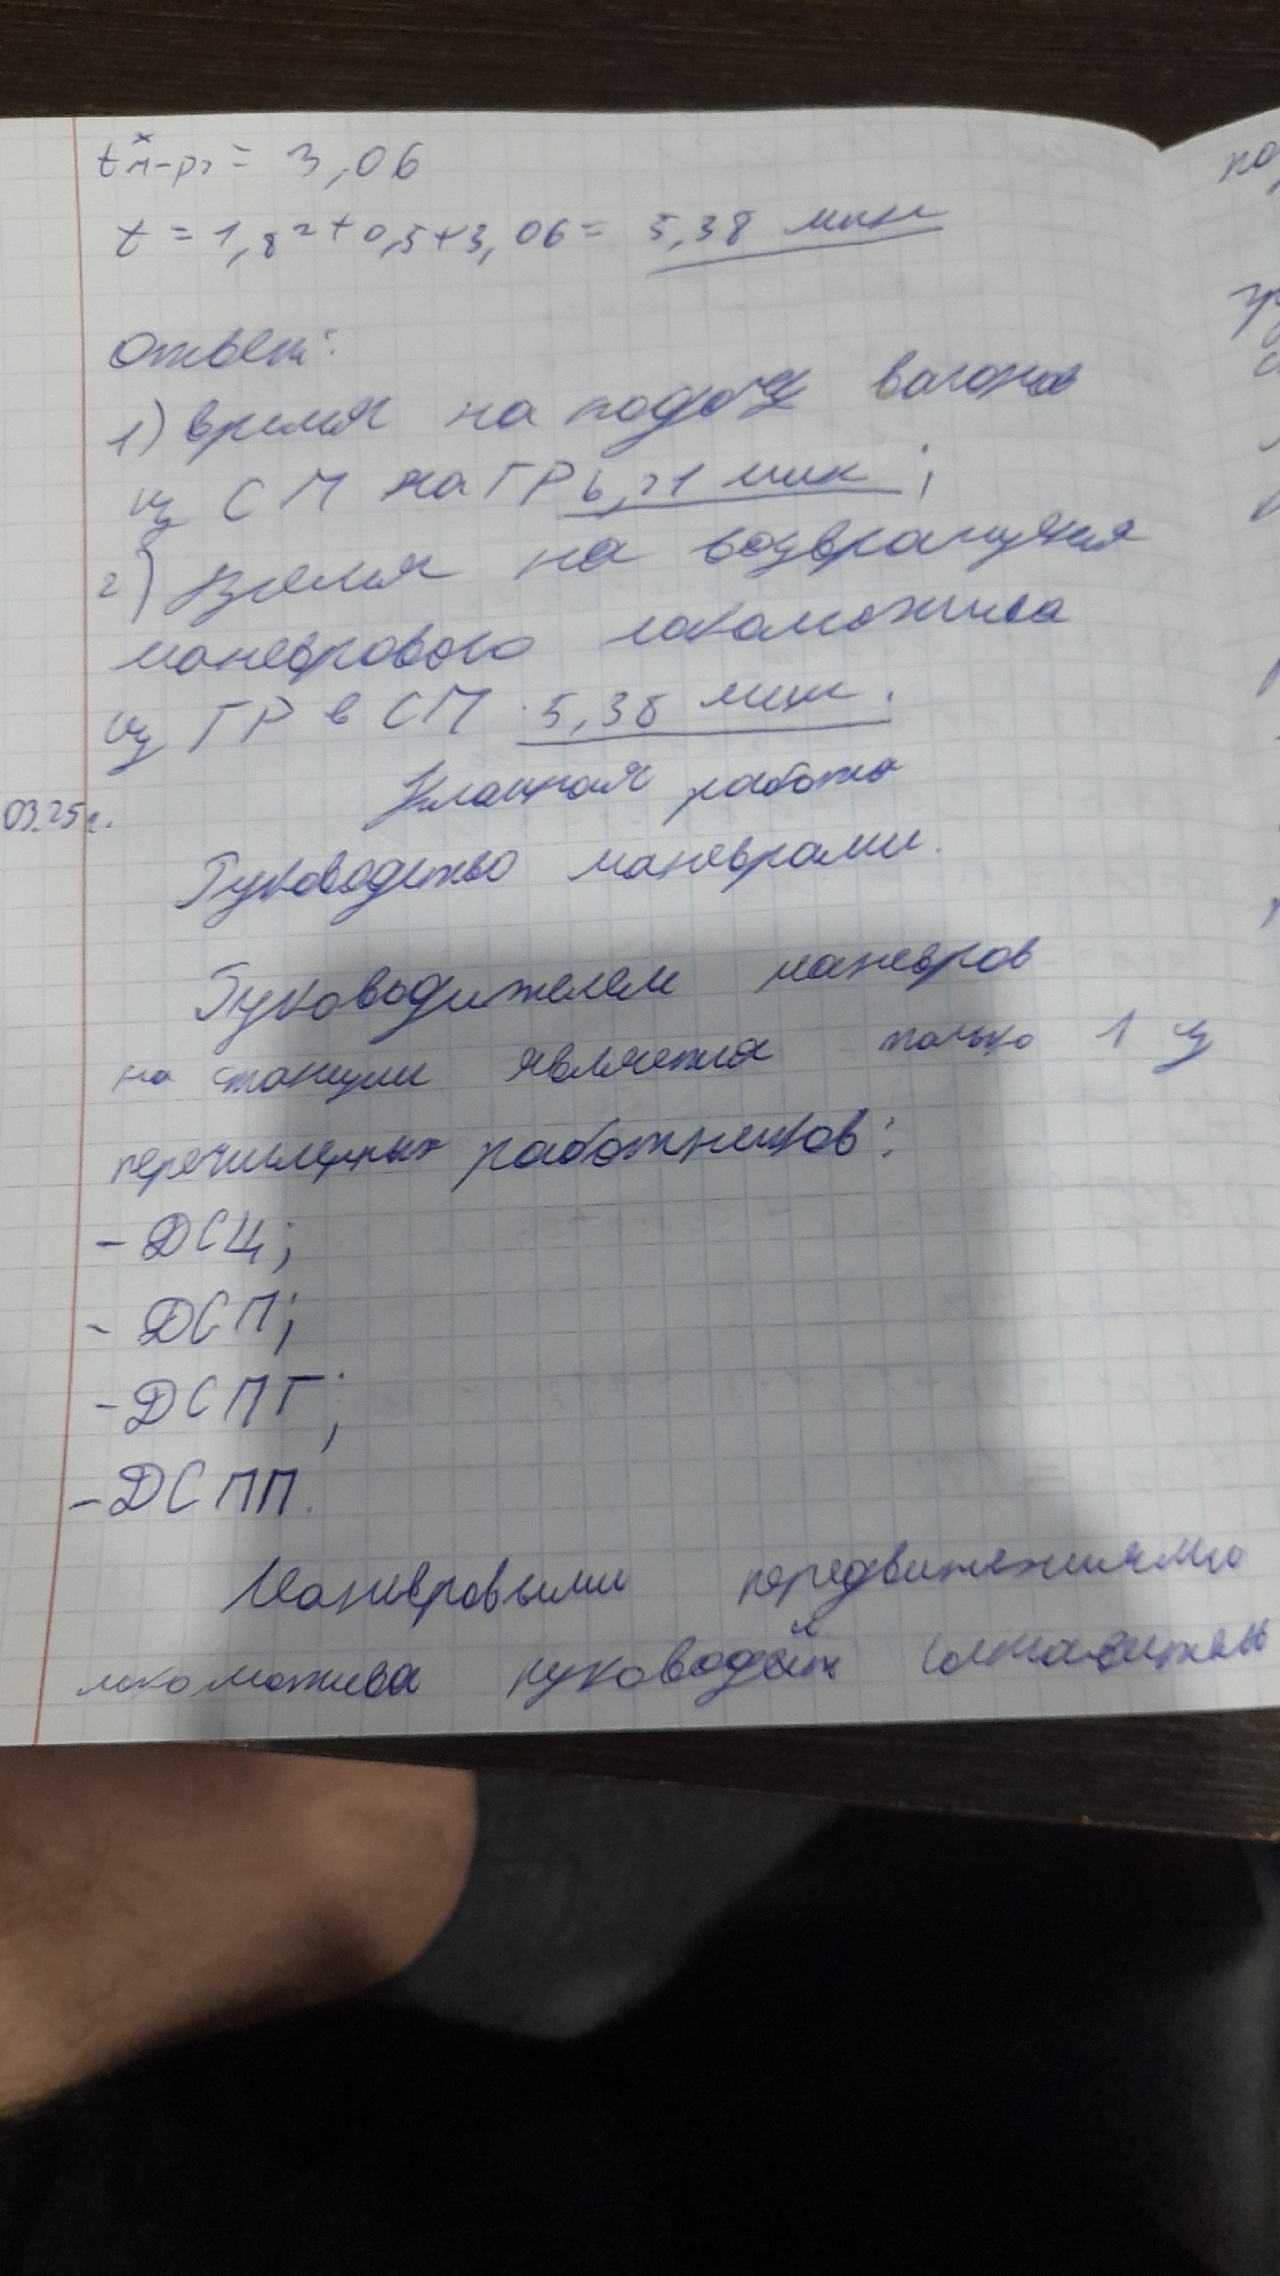 t^x_м-рэ = 3,06
t = 1,82 + 0,5 + 3,06 = 5,38 мин
Ответ:
1) время на подачу вагонов
из СП на ГР 6,21 мин;
2) Время на возвращения
маневрового локомотива
из ГР в СП 5,38 мин.
03.25г. Классная работа
Руководство маневрами.
Руководителем маневров
на станции является только 1 из
перечисленных работников:
- ДСЦ;
- ДСП;
- ДСПГ;
- ДСПП.
Маневровыми передвижениями
локомотива руководит составитель
по